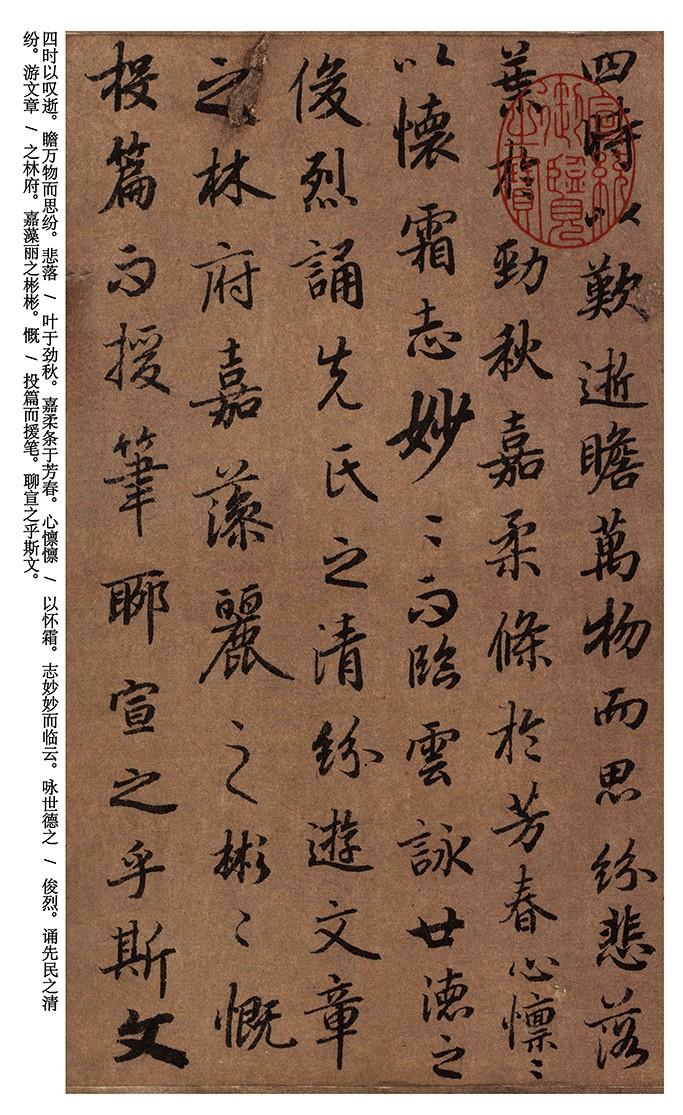 四時以歎逝瞻萬物而思紛悲落
葉於勁秋嘉柔條於芳春心懍〻
以懷霜志妙〻而臨雲詠世德之
俊烈誦先民之清紛遊文章
之林府嘉藻麗之彬〻慨
投篇而援筆聊宣之乎斯文
宣統御覽之寶
四时以叹逝。瞻万物而思纷。悲落 / 叶于劲秋。嘉柔条于芳春。心懔懔 / 以怀霜。志妙妙而临云。咏世德之 / 俊烈。诵先民之清
纷。游文章 / 之林府。嘉藻丽之彬彬。慨 / 投篇而援笔。聊宣之乎斯文。